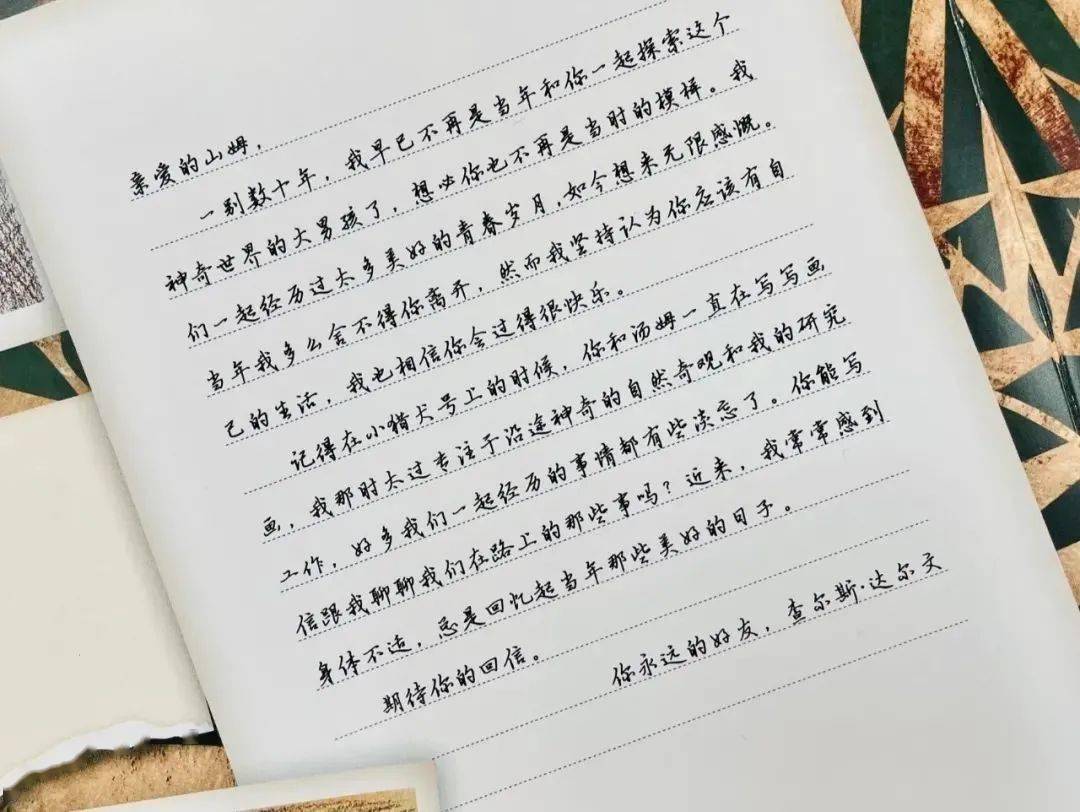 亲爱的山姆，
一别数十年，我早已不再是当年和你一起探索这个
神奇世界的大男孩了，想必你也不再是当时的模样。我
们一起经历过太多美好的青春岁月，如今想来无限感慨。
当年我多么舍不得你离开，然而我坚持认为你应该有自
己的生活，我也相信你会过得很快乐。
记得在小猎犬号上的时候，你和汤姆一直在写写画
画，我那时太过专注于沿途神奇的自然奇观和我的研究
工作，好多我们一起经历的事情都有些淡忘了。你能写
信跟我聊聊我们在路上的那些事吗？近来，我常常感到
身体不适，总是回忆起当年那些美好的日子。
期待你的回信。
你永远的好友，查尔斯·达尔文